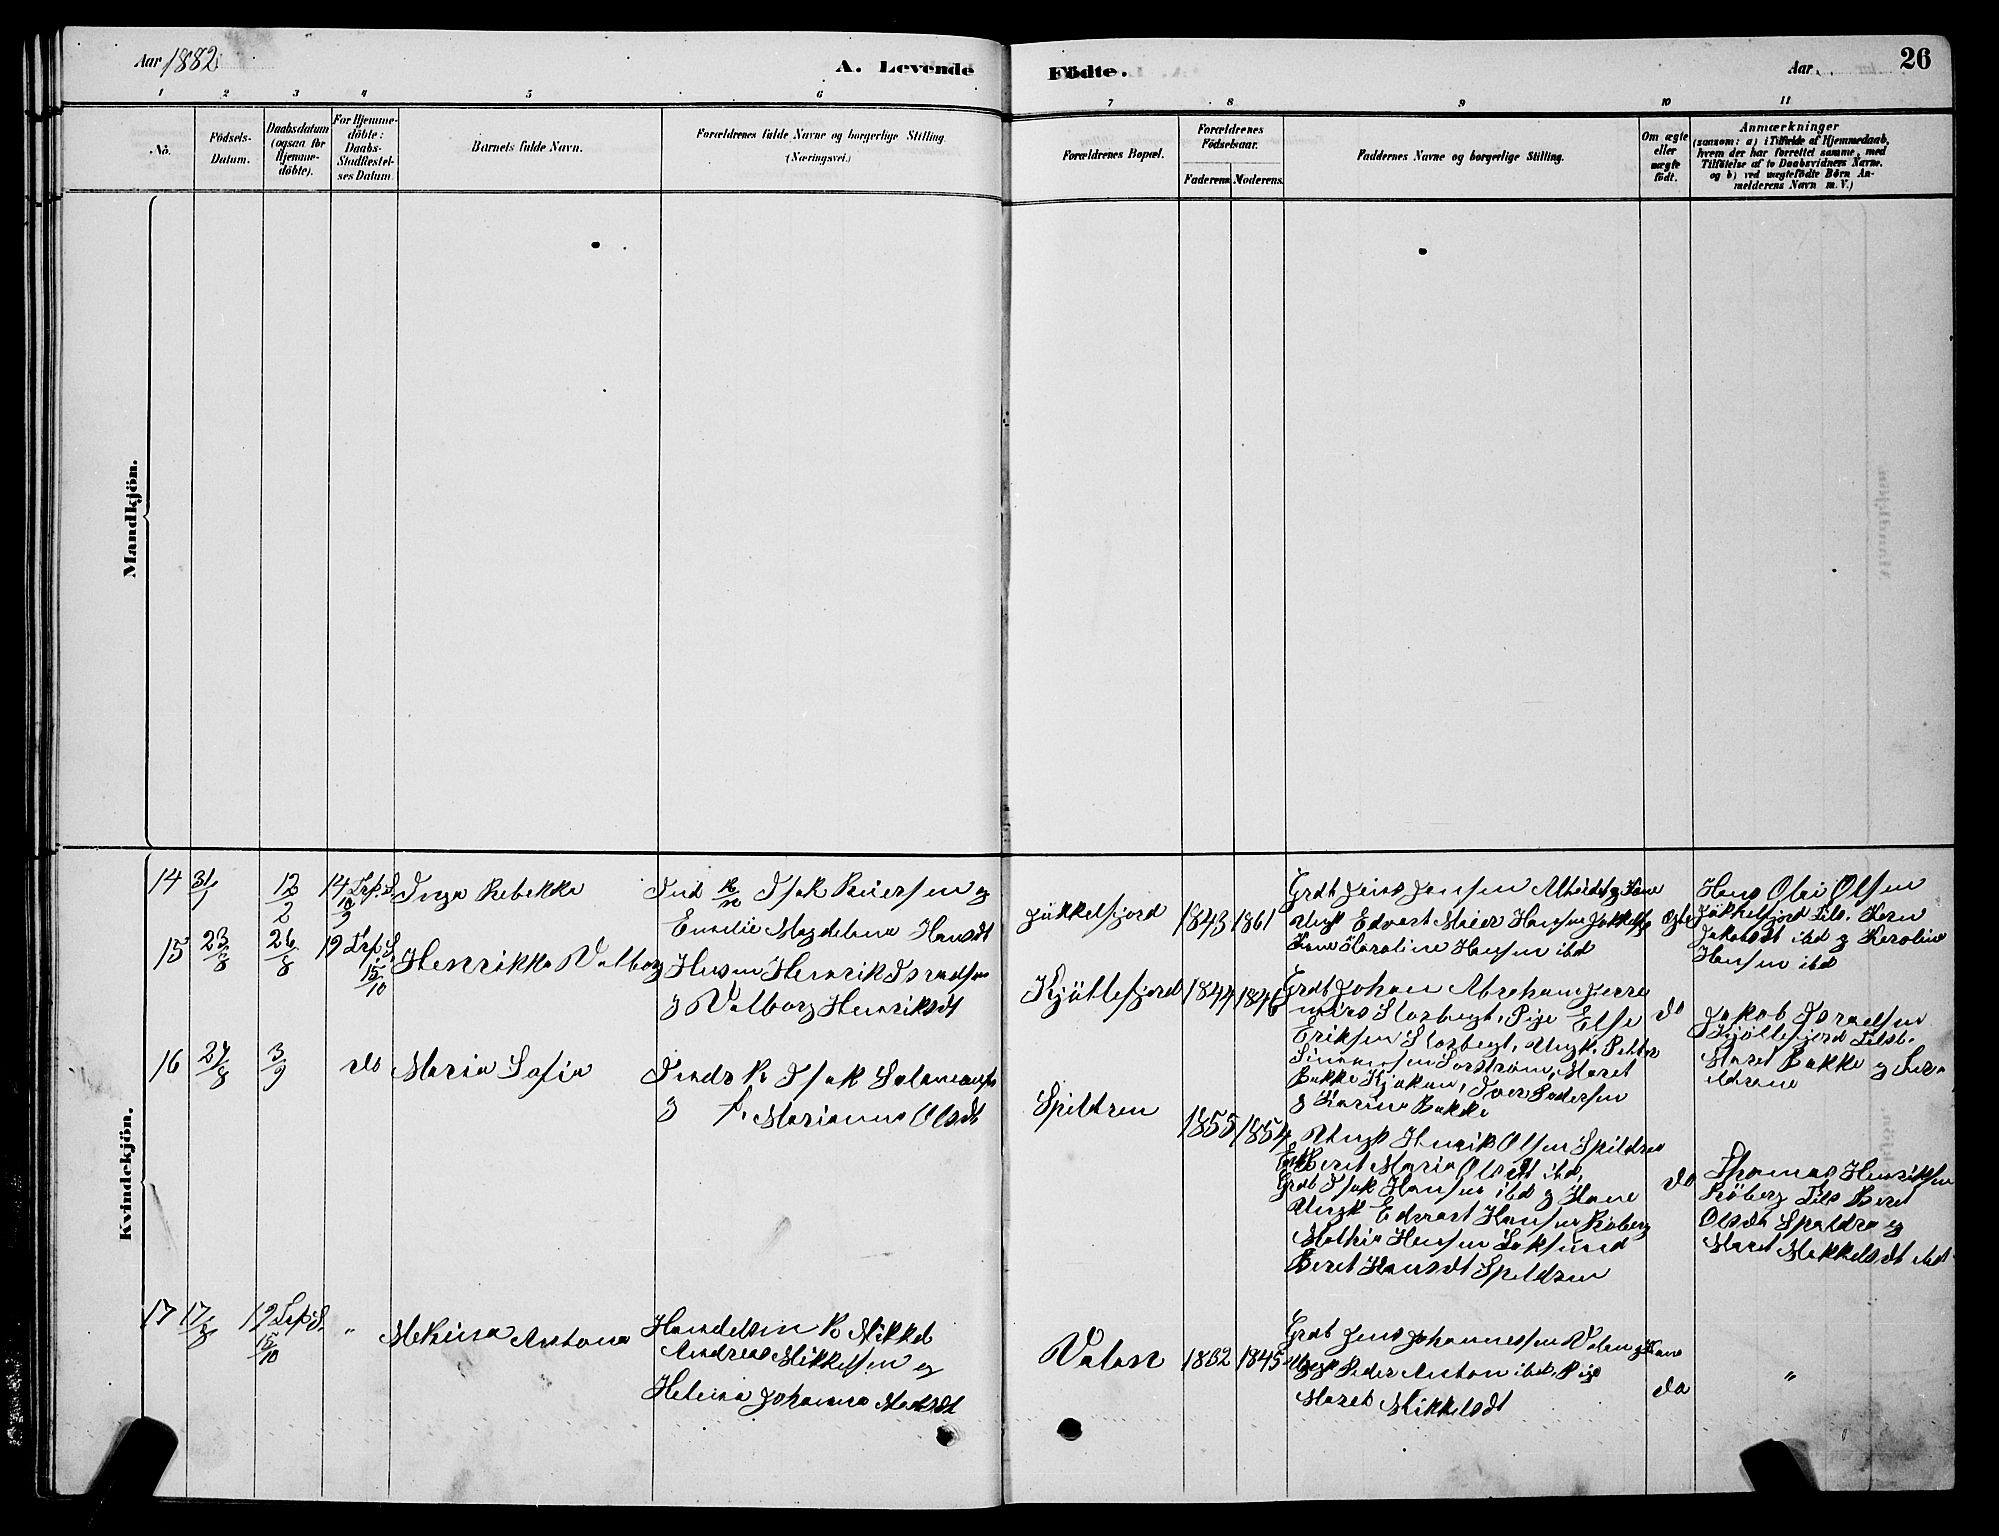 Aar 1882
A. Levende Födte.
Aar
26
1 2 3 4 5 6 7 8 9 10 11
No.
Födsels-
Datum.
Daabsdatum
(ogsaa for
Hjemme-
döbte).
For Hjemme-
döbte:
Daabs-
Stadfæstel-
ses Datum.
Barnets fulde Navn.
Forældrenes fulde Navne og borgerlige Stilling.
(Næringsvei.)
Forældrenes Bopæl.
Forældrenes
Födselsaar.
Faderens. Moderens.
Faddernes Navne og borgerlige Stilling.
Om ægte
eller
uægte
födt.
Anmærkninger
(saasom: a) i Tilfælde af Hjemmedaab,
hvem der har forrettet samme, med
Tilföielse af to Daabsvidners Navne,
og b) ved uægtefödte Börn An-
melderens Navn m. V.)
Mandkjön.
Kvindekjön.
14 31/1 12/2 14 10/9 Inga Rebekka
Isak Reiersen og
Emelie Magdelena Hansdt
Jøkkelfjord 1843 1861
Grdb Jens Jensen Altneidet g Kone
Ungk Edvart Meier Hansen
Kone Karoline Hansen ibd
Ægte
Hans Ole Olsen
Jøkkelfjord Karn
Jakobsdt ibd g Karoline
Hansen ibd
15 23/8 26/8 19 15/10 Henrikka Valborg
Husm Henrik Israelsen
g Valborg Henriksdt
Kjøllefjord 1844 1846
Grdb Johan Abraham
Storbegt, Pige Else
Eriksen Storbegt, Ungk. Petter
Sorstrøm, Maret
Bakke Kjækan, Iver Pedersen
g Karina Bakke
do
Jakob Israelsen
Kjøllefjord
Maret Bakke g
16 27/8 3/9 do Maria Sofia
Isak Salamonsen
g Marianna Olsdt
Spildren 1855 1854
Ungk Henrik Olsen Spildren
Beret Maria Olsdt ibd,
Grdb Isak Hansen ibd g Kone
Ungk Edvart Hansen Røberg
Mathis Hansen
Beret Hansdt Spildren
do
Thomas Henriksen
Røberg Beret
Olsdt Spildren g
Maret Mikkelsdt ibd
17 17/8 19 15/10 " Antona
Handelsm Mikkel
Andreas Mikkelsen og
Helena Johanna
Valan 1832 1845
Grdb Jens Johannessen Valan g Kone
Ungk Peder Anton ibd, Pige
Maret Mikkelsdt
do
"